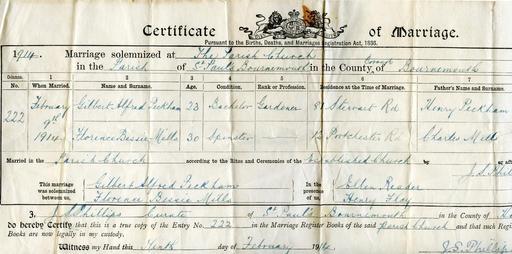 Certificate of Marriage.
Pursuant to the Births, Deaths, and Marriages Registration Act, 1836.
1914. Marriage solemnized at The Parish Church
in the Parish of St Pauls Bournemouth in the County Borough Bournemouth
Columns. 1 2 3 4 5 6 7
No. When Married. Name and Surname. Age. Condition. Rank or Profession. Residence at the Time of Marriage. Father's Name and Surname.
222 February 9th 1914 Gilbert Alfred Peckham 23 Bachelor Gardener 81 Stewart Rd Henry Peckham
Florence Bessie Mells 30 Spinster 12 Portchester Rd Charles Mells
Married in the Parish Church according to the Rites and Ceremonies of the Established Church by
J.S. Phil
This marriage was solemnized between us, Gilbert Alfred Peckham Florence Bessie Mells in the Presence of us Ellen Reader Henry
3. J.S. Phillips Curate of St Paul's Bournemouth in the County of
do hereby Certify that this is a true copy of the Entry No. 222 in the Marriage Register Books of the said parish Church and that such Reg
Books are now legally in my custody.
Witness my Hand this day of February 1914. J.S. Phillip